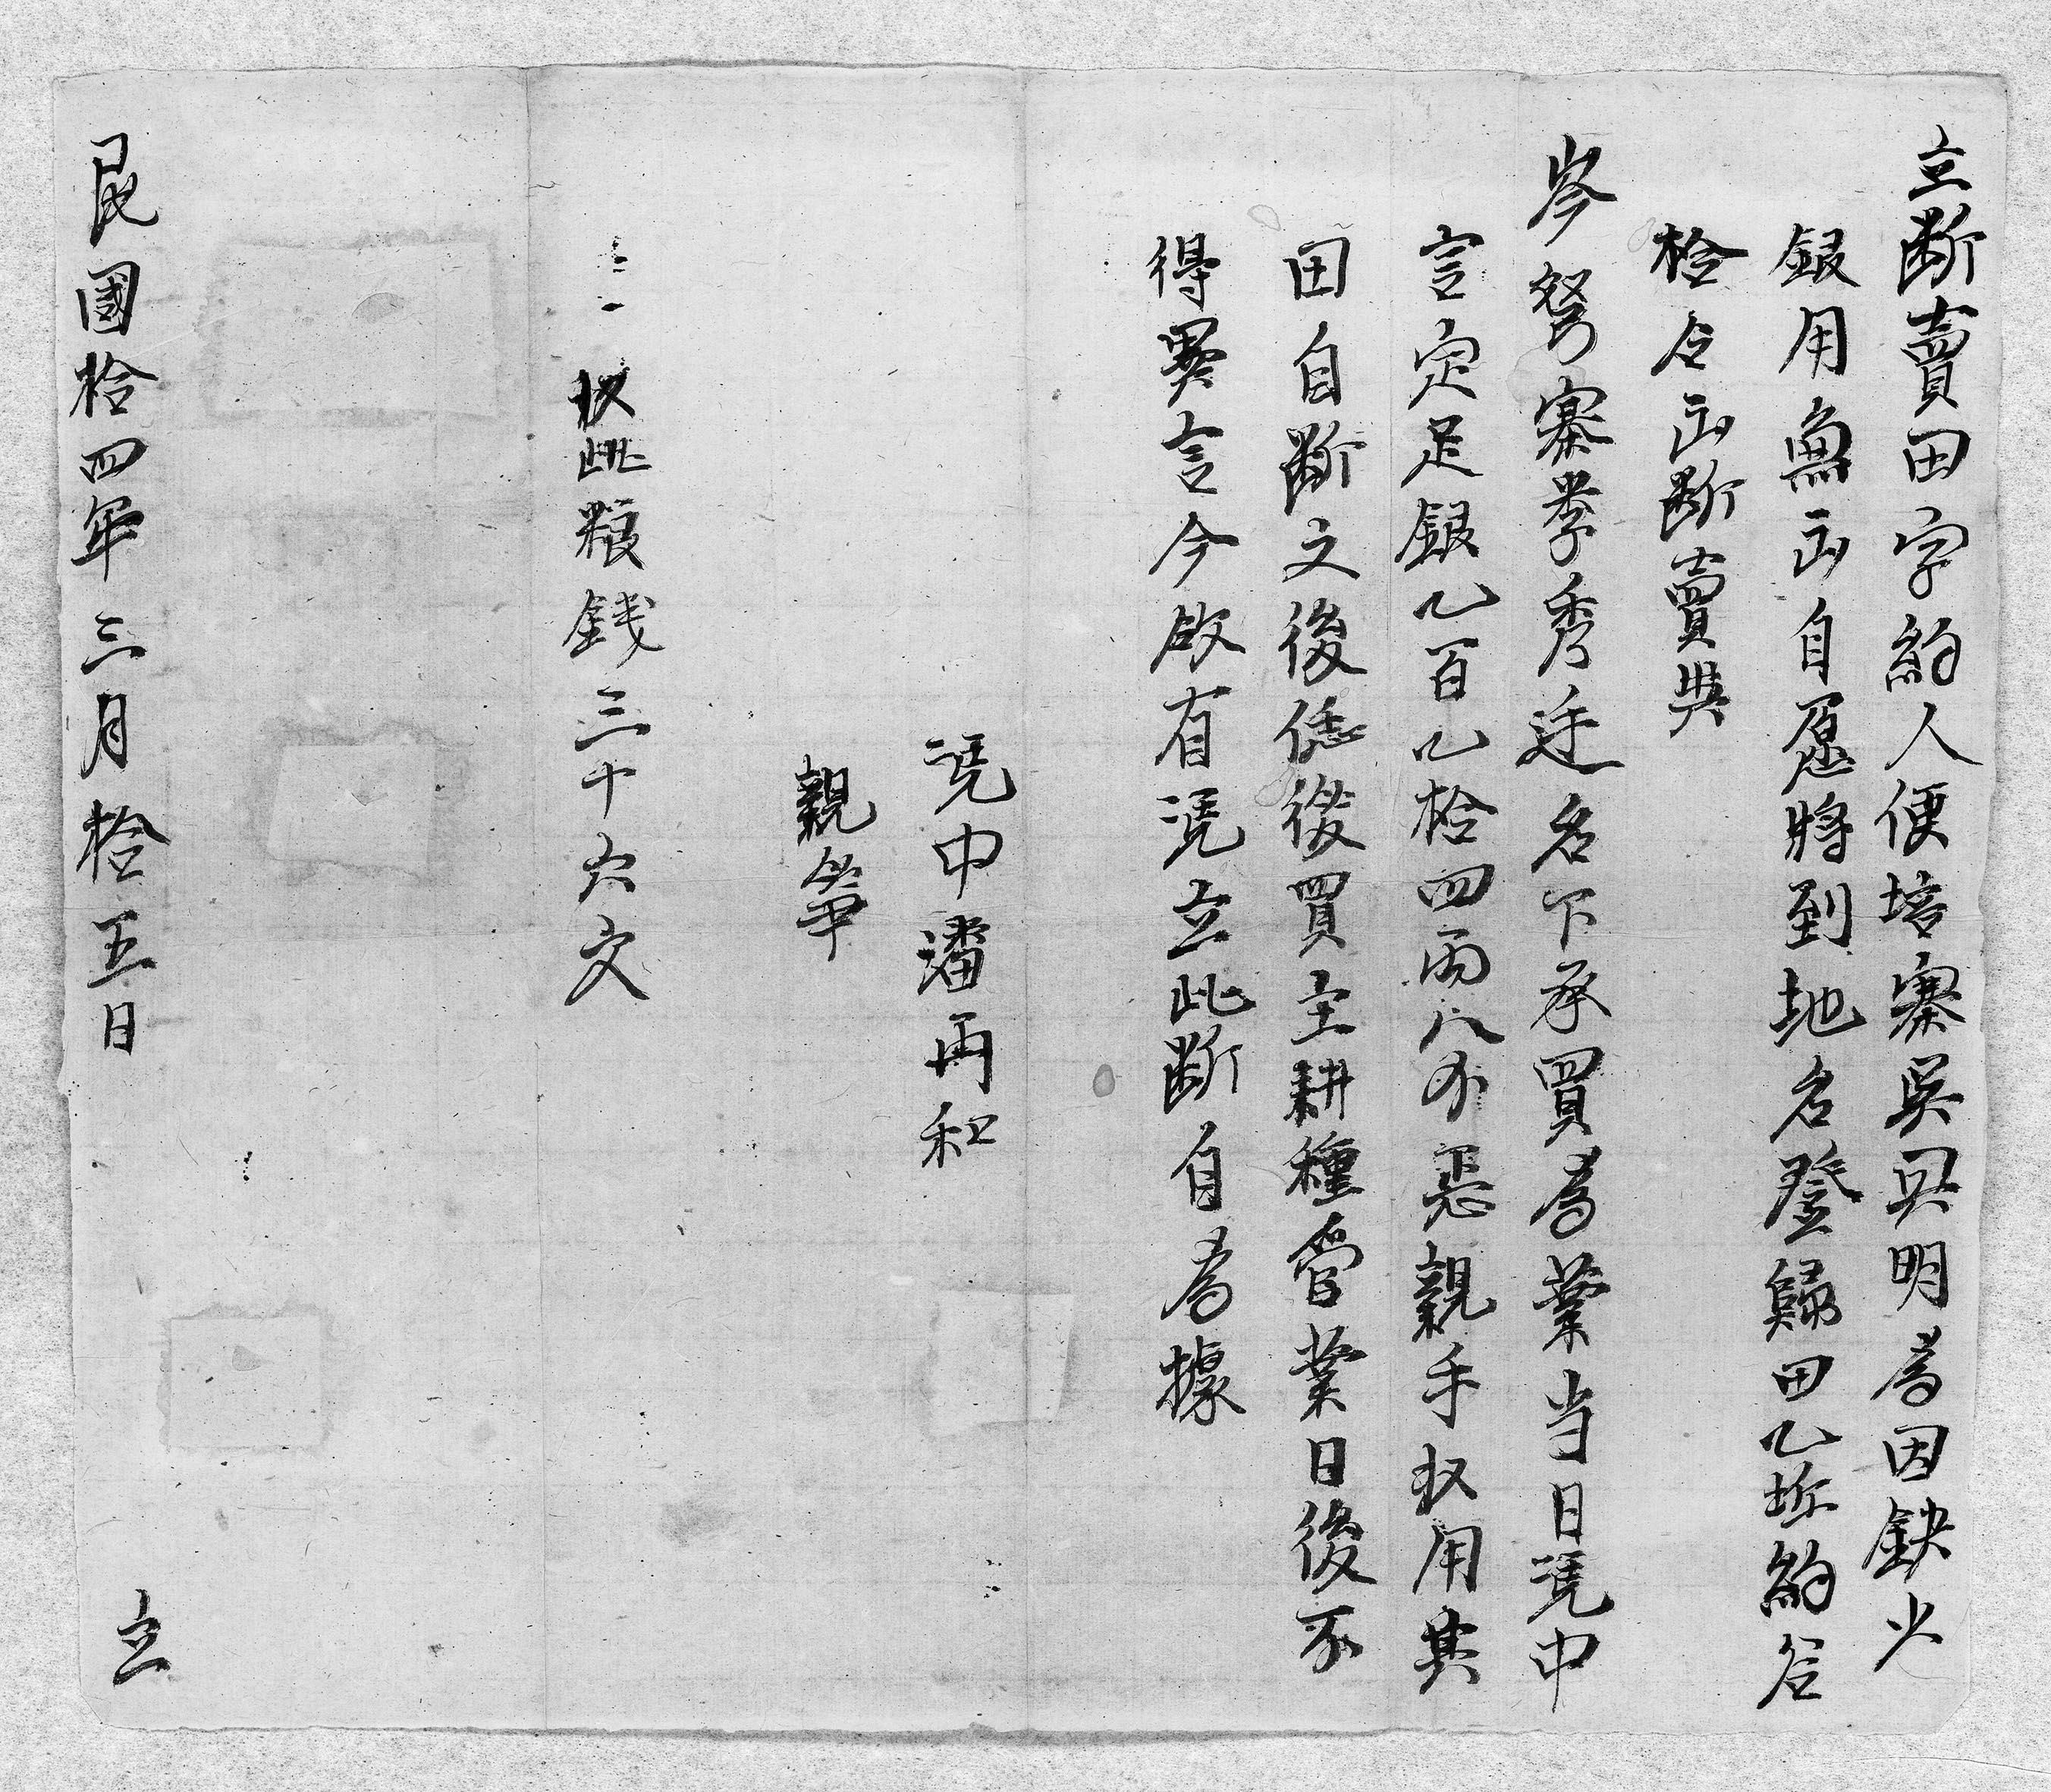 立断賣田字約人便培寨吳思明為因缺少
銀用無出自愿將到地名登歸田乙坵約谷
拾合出断賣與
岑努寨季秀廷名下承買為業当日凴中
言定足銀乙百乙拾四兩八分親手收用其
田自断之後任從買主耕種管業日後不
得異言今啟有凴立此断自為據
凴中潘再和
親筆
收此粮錢三十六文
民國拾四年三月拾五日 立